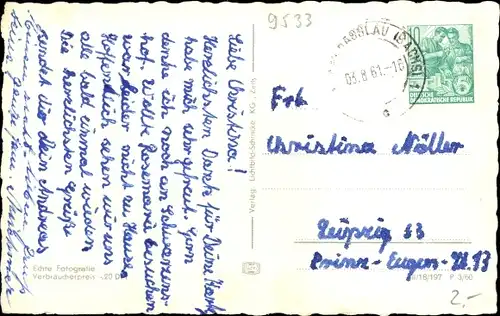 9533
Liebe Christina!
Herzlichsten Dank für Deine Karte
habe mich sehr gefreut. Gern
denke ich noch an Schwarzen-
hof. Wollte Rosemarie besuchen
war leider nicht zu Hause
Hoffentlich sehen wir uns
alle bald einmal wieder
Die herzlichsten Grüße
sendet Dir Dein Andreas
Echte Fotografie
Verbraucherpreis -,20 DM
Verlag:
(SACHS) 1
03.8.61.-16
10
DEUTSCHE
DEMOKRATISCHE REPUBLIK
Frl.
Christina Nöller
Leipzig S3
Prinz-Eugen-Str. 13
18/197 P 3/60
2.-